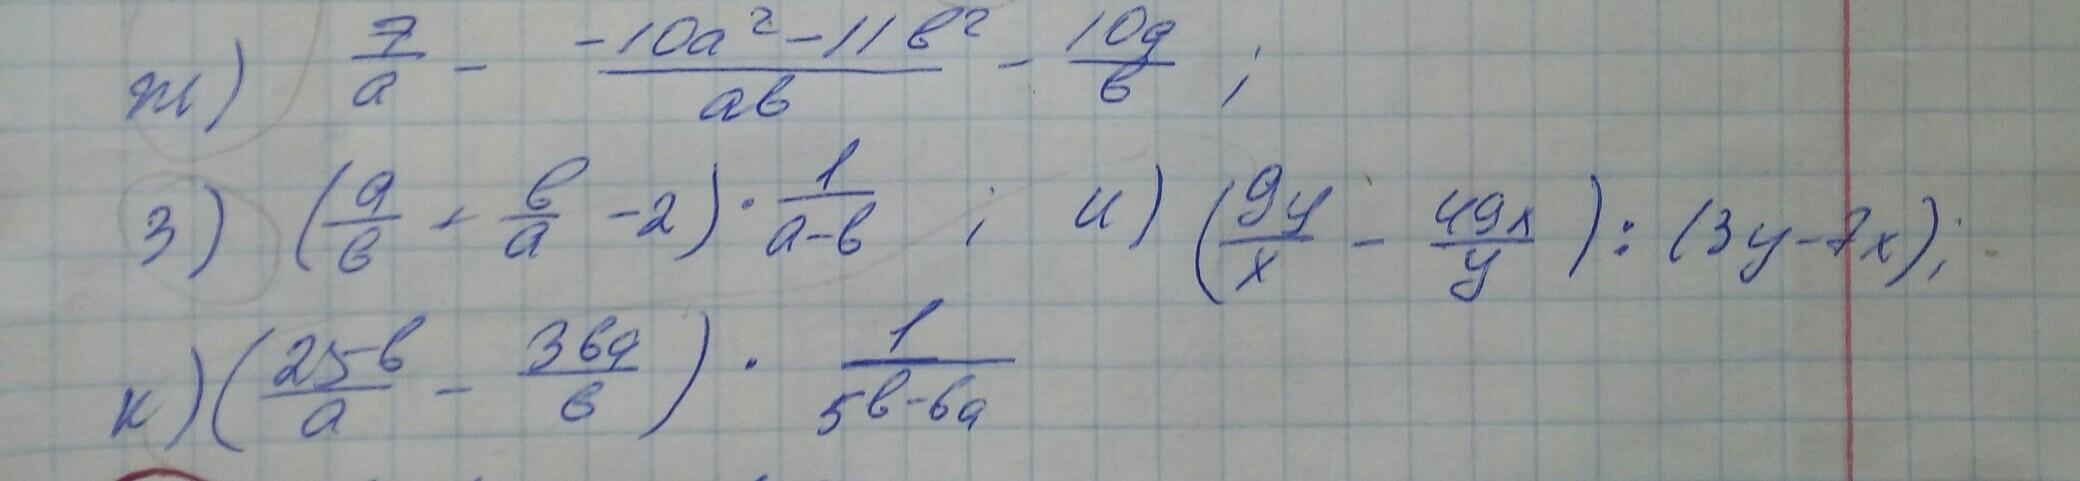 ж) 7/a - -10a² - 11b²/ab - 10a/b ;
з) (a/b + b/a - 2) · 1/a-b ; и) (9y/x - 49x/y) : (3y-7x);
к) (25b/a - 36a/b) · 1/5b-6a